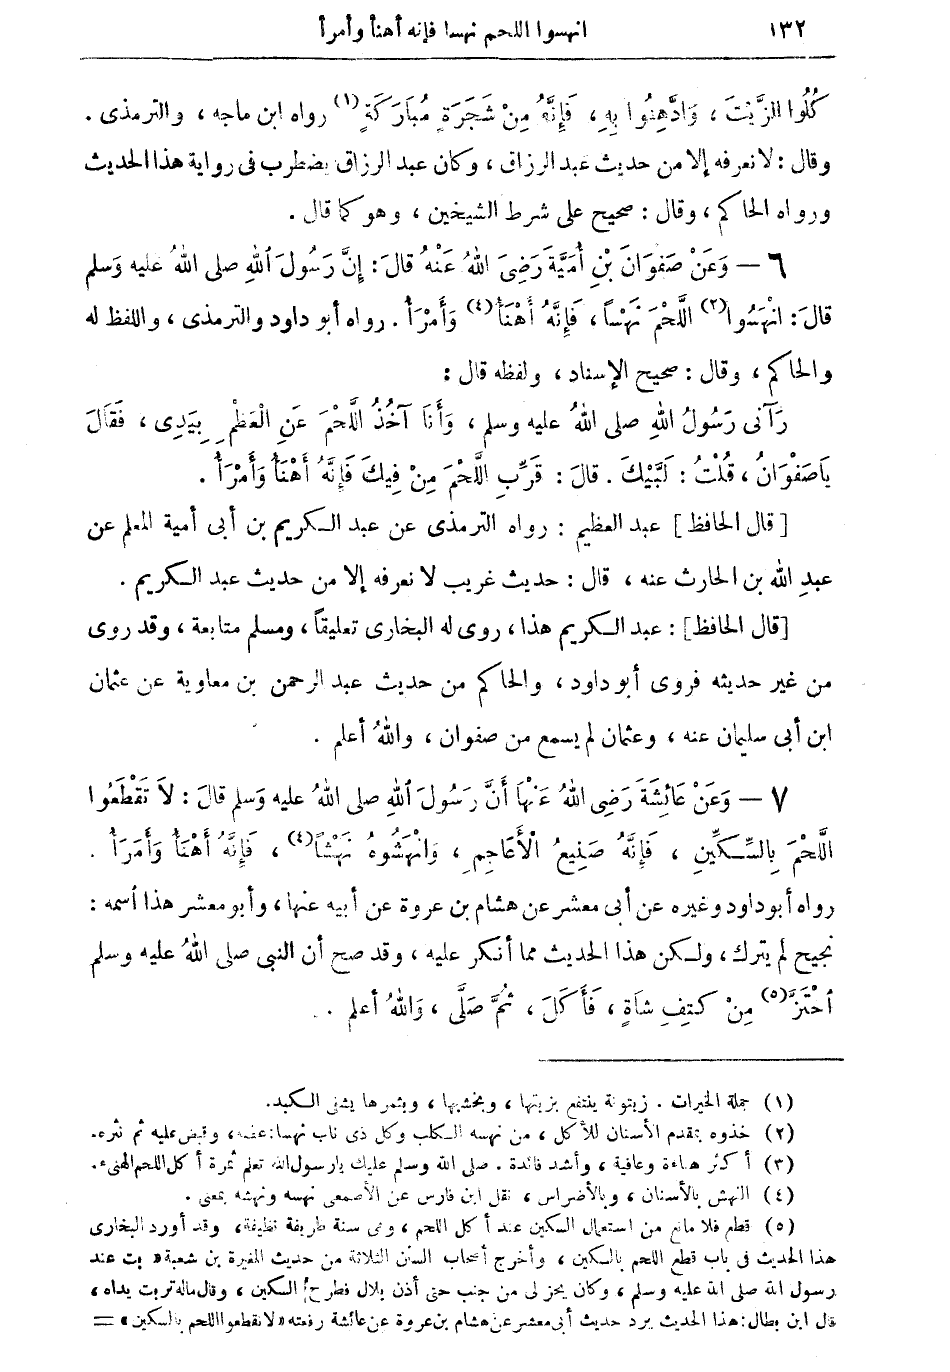 ١٣٢ انهسوا اللحم نهسا فإنه أهنأ وأمرأ
كُلُوا الزَّيْتَ ، وَادَّهِنُوا بِهِ، فَإِنَّهُ مِنْ شَجَرَةٍ مُبَارَكَةٍ (١) رواه ابن ماجه ، والترمذى .
وقال : لا نعرفه إلا من حديث عبد الرزاق ، وكان عبد الرزاق يضطرب فى رواية هذا الحديث
ورواه الحاكم ، وقال : صحيح على شرط الشيخين ، وهو كما قال .
٦ — وَعَنْ صَفْوَانَ بْنِ أُمَيَّةَ رَضِىَ اللهُ عَنْهُ قالَ : إِنَّ رَسُولَ اللهِ صلى اللهُ عليه وَسلم
قالَ : انْهَسُوا (٢) اللَّحْمَ نَهْسًا ، فَإِنَّهُ أَهْنَأُ (٤) وَأَمْرَأُ . رواه أبو داود والترمذى ، واللفظ له
والحاكم ، وقال : صحيح الإسناد ، ولفظه قال :
رَآنى رَسُولُ اللهِ صلى اللهُ عليه وسلم ، وَأَنَا آخُذُ اللَّحْمَ عَنِ الْعَظْمِ بِيَدِى ، فَقَالَ
يَاصَفْوَانُ ، قُلْتُ : لَبَّيْكَ . قالَ : قَرِّبِ اللَّحْمَ مِنْ فِيكَ فَإِنَّهُ أَهْنَأُ وَأَمْرَأُ .
[ قال الحافظ ] عبد العظيم : رواه الترمذى عن عبد الكريم بن أبى أمية المعلم عن
عبدِ الله بن الحارث عنه ، قال : حديث غريب لا نعرفه إلا من حديث عبد الكريم .
[قال الحافظ] : عبد الكريم هذا ، روى له البخارى تعليقاً ، ومسلم متابعة ، وقد روى
من غير حديثه فروى أبو داود ، والحاكم من حديث عبد الرحمن بن معاوية عن عثمان
ابن أبى سليمان عنه ، وعثمان لم يسمع من صفوان ، واللهُ أعلم .
٧ — وَعَنْ عَائِشَةَ رَضِىَ اللهُ عَنْهَا أَنَّ رَسُولَ اللهِ صلى اللهُ عليه وَسلم قالَ : لاَ تَقْطَعُوا
اللَّحْمَ بِالسِّكِّينِ ، فَإِنَّهُ صَنِيعُ الْأَعَاجِمِ ، وَانْهَشُوهُ نَهْشًا (٤) ، فَإِنَّهُ أَهْنَأُ وَأَمْرَأُ .
رواه أبو داود وغيره عن أبى معشر عن هشام بن عروة عن أبيه عنها ، وأبو معشر هذا أسمه :
نجيح لم يترك ، ولكن هذا الحديث مما أنكر عليه ، وقد صح أن النبى صلى اللهُ عليه وسلم
أَحْتَزَّ (٥) مِنْ كَتِفِ شاَةٍ ، فَأَكَلَ ، ثُمَّ صَلَّى ، وَاللهُ أعلم .
(١) جملة الخيرات . زيتونة ينتفع بزيتها ، وبخشبها ، وبثمرها يشفى الكبد.
(٢) خذوه بمقدم الأسنان للأكل ، من نهسه الكلب وكل ذى ناب نهسا: عضه، وقبض عليه ثم نثره.
(٣) أكثر هناءة وعافية ، وأشد فائدة . صلى الله وسلم عليك يارسول الله تعلم ثمرة أكل اللحم الهنىء.
(٤) النهش بالأسنان ، وبالأضراس ، نقل ابن فارس عن الأصمعى نهسه ونهشه بمعنى .
(٥) قطع فلا مانع من استعمال السكين عند أكل اللحم ، وهى سنة طريفة نظيفة، وقد أورد البخارى
هذا الحديث فى باب قطع اللحم بالسكين ، وأخرج أصحاب السنن الثلاثة من حديث المغيرة بن شعبة « بت عند
رسول الله صلى الله عليه وسلم ، وكان يحز لى من جنب حتى أذن بلال فطرح السكين ، وقال ماله تربت يداه ،
قال ابن بطال: هذا الحديث يرد حديث أبى معشر عن هشام بن عروة عن عائشة رفعته «لا تقطعوا اللحم بالسكين» =